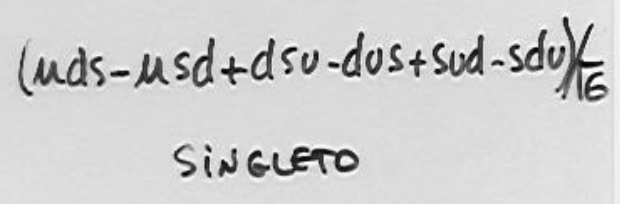 (uds-usd+dsu-dus+sud-sdu)1/√6
SINGLETO